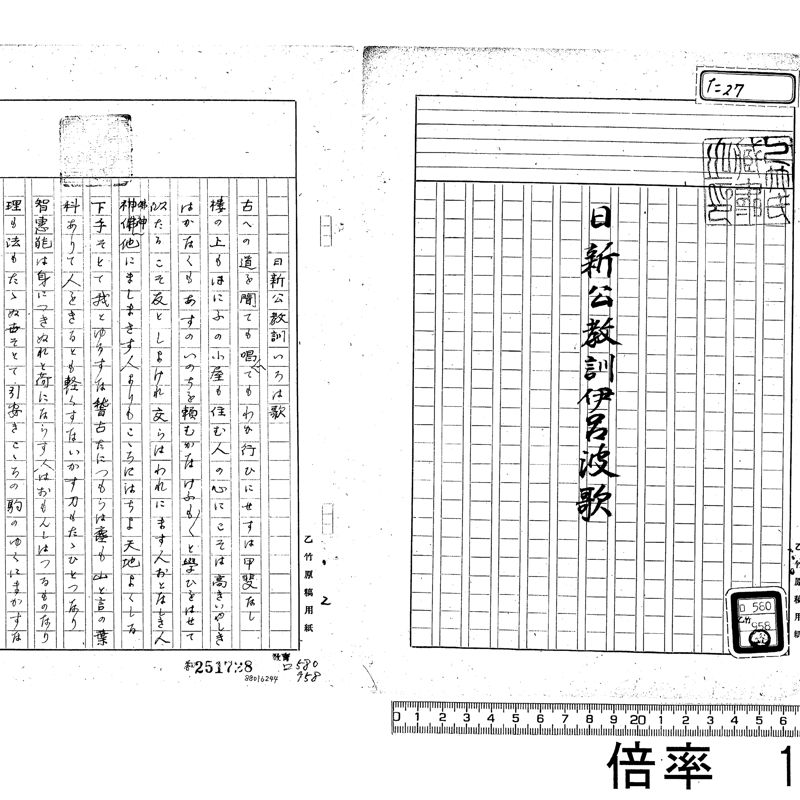 た27
日新公教訓伊呂波歌
乙竹原稿用紙
560
乙竹
958
日新公教訓いろは歌
古への道を聞ても唱てもわか行ひにせすは甲斐なし
楼の上もはにふの小屋も住む人の心にこそは高きいやしき
はかなくもあすのいのちを頼むかなけふも〱と学ひをはせて
にたるこそ友としよけれ交らはわれにます人おとなしき人
神佛他にましまさす人よりもこゝろにはちよ天地よくしる
下手そとて我とゆるすな稽古たにつもらは塵も山と言の葉
科ありて人をきるとも軽くすないかす刀もたゝひとつなり
智恵能は身につきぬれと荷にならす人はおもんしはつるものなり
理も法もたゝぬ世そとて引安きこゝろの駒のゆくにまかすな
乙竹原稿用紙
2
251728
88016294
580
958
0 1 2 3 4 5 6 7 8 9 20 1 2 3 4 5 6
倍率 1